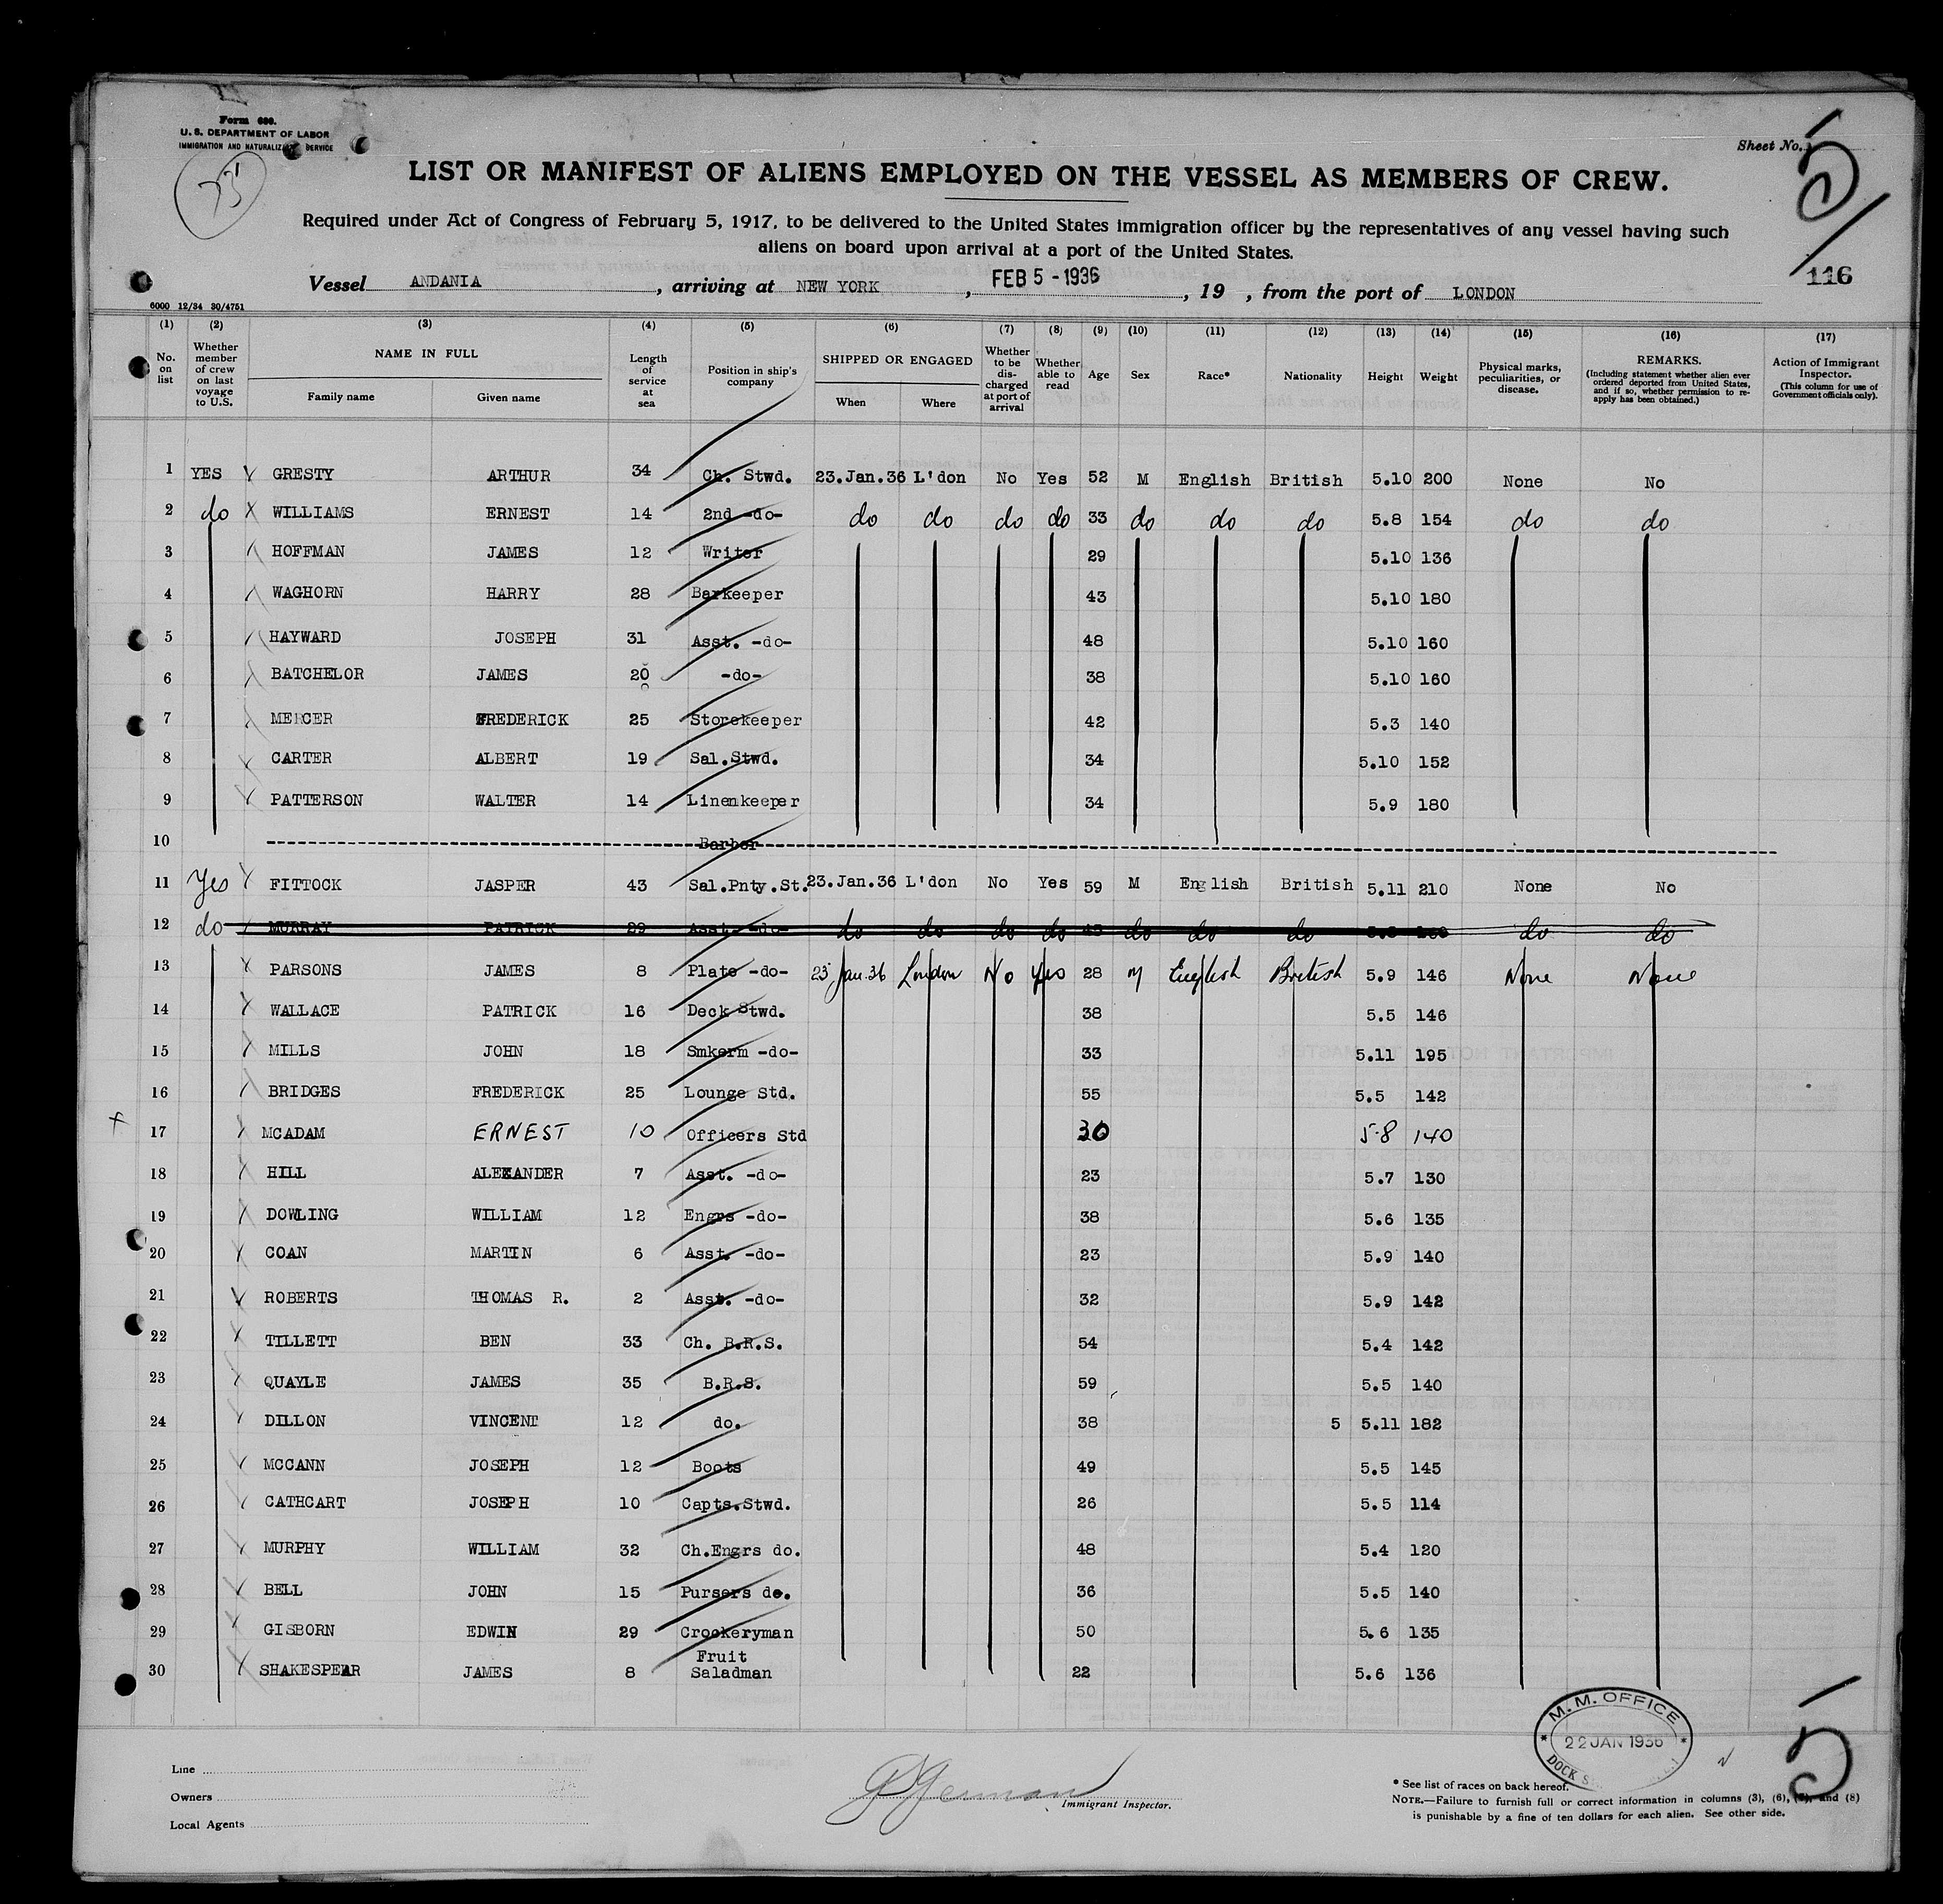 Form 689.
U. S. DEPARTMENT OF LABOR
IMMIGRATION AND NATURALIZ SERVICE
Sheet No. 5
75
LIST OR MANIFEST OF ALIENS EMPLOYED ON THE VESSEL AS MEMBERS OF CREW.
Required under Act of Congress of February 5, 1917, to be delivered to the United States immigration officer by the representatives of any vessel having such
aliens on board upon arrival at a port of the United States.
116
Vessel ANDANIA, arriving at NEW YORK, FEB 5 - 1936, 19 , from the port of LONDON
6000 12/34 30/4751
(1) (2) (3) (4) (5) (6) (7) (8) (9) (10) (11) (12) (13) (14) (15) (16) (17)
No. on list
Whether member of crew on last voyage to U.S.
NAME IN FULL
Family name Given name
Length of service at sea
Position in ship's company
SHIPPED OR ENGAGED
When Where
Whether to be discharged at port of arrival
Whether able to read
Age
Sex
Race*
Nationality
Height
Weight
Physical marks, peculiarities, or disease.
REMARKS.
(Including statement whether alien ever ordered deported from United States, and if so, whether permission to re-apply has been obtained.)
Action of Immigrant Inspector.
(This column for use of Government officials only).
1 YES GRESTY ARTHUR 34 Ch. Stwd. 23.Jan.36 L'don No Yes 52 M English British 5.10 200 None No
2 do WILLIAMS ERNEST 14 2nd -do- do do do do 33 do do do 5.8 154 do do
3 HOFFMAN JAMES 12 Writer 29 5.10 136
4 WAGHORN HARRY 28 Barkeeper 43 5.10 180
5 HAYWARD JOSEPH 31 Asst. -do- 48 5.10 160
6 BATCHELOR JAMES 20 -do- 38 5.10 160
7 MERCER FREDERICK 25 Storekeeper 42 5.3 140
8 CARTER ALBERT 19 Sal.Stwd. 34 5.10 152
9 PATTERSON WALTER 14 Linenkeeper 34 5.9 180
10 Barber
11 Yes FITTOCK JASPER 43 Sal.Pnty.St. 23.Jan.36 L'don No Yes 59 M English British 5.11 210 None No
12 do MURRAY PATRICK 29 Asst. -do- do do do do do do do do do
13 PARSONS JAMES 8 Plate -do- 23 Jan.36 London No Yes 28 M English British 5.9 146 None None
14 WALLACE PATRICK 16 Deck Stwd. 38 5.5 146
15 MILLS JOHN 18 Smkerm -do- 33 5.11 195
16 BRIDGES FREDERICK 25 Lounge Std. 55 5.5 142
17 MCADAM ERNEST 10 Officers Std 30 5.8 140
18 HILL ALEXANDER 7 Asst. -do- 23 5.7 130
19 DOWLING WILLIAM 12 Engrs -do- 38 5.6 135
20 COAN MARTIN 6 Asst. -do- 23 5.9 140
21 ROBERTS THOMAS R. 2 Asst. -do- 32 5.9 142
22 TILLETT BEN 33 Ch. B.R.S. 54 5.4 142
23 QUAYLE JAMES 35 B.R.S. 59 5.5 140
24 DILLON VINCENT 12 do. 38 5 5.11 182
25 MCCANN JOSEPH 12 Boots 49 5.5 145
26 CATHCART JOSEPH 10 Capts.Stwd. 26 5.5 114
27 MURPHY WILLIAM 32 Ch.Engrs do. 48 5.4 120
28 BELL JOHN 15 Pursers do. 36 5.5 140
29 GISBORN EDWIN 29 Crockeryman 50 5.6 135
30 SHAKESPEAR JAMES 8 Fruit Saladman 22 5.6 136
M. M. OFFICE
22 JAN 1936
DOCK S
5
Line
Owners
Local Agents
Immigrant Inspector.
* See list of races on back hereof.
NOTE.—Failure to furnish full or correct information in columns (3), (6), (7), and (8)
is punishable by a fine of ten dollars for each alien. See other side.